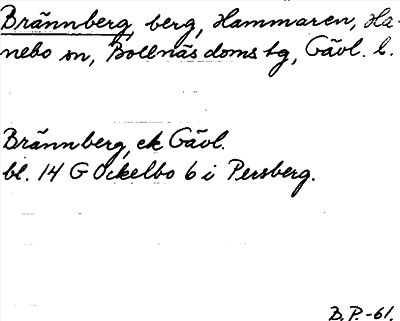 Brännberg, berg, Hammaren, Ha-
nebo sn, Bollnäs doms tg, Gävl. l.
Brännberg, ek Gävl.
bl. 14 G Ockelbo 6 i Persberg.
B.P.-61.